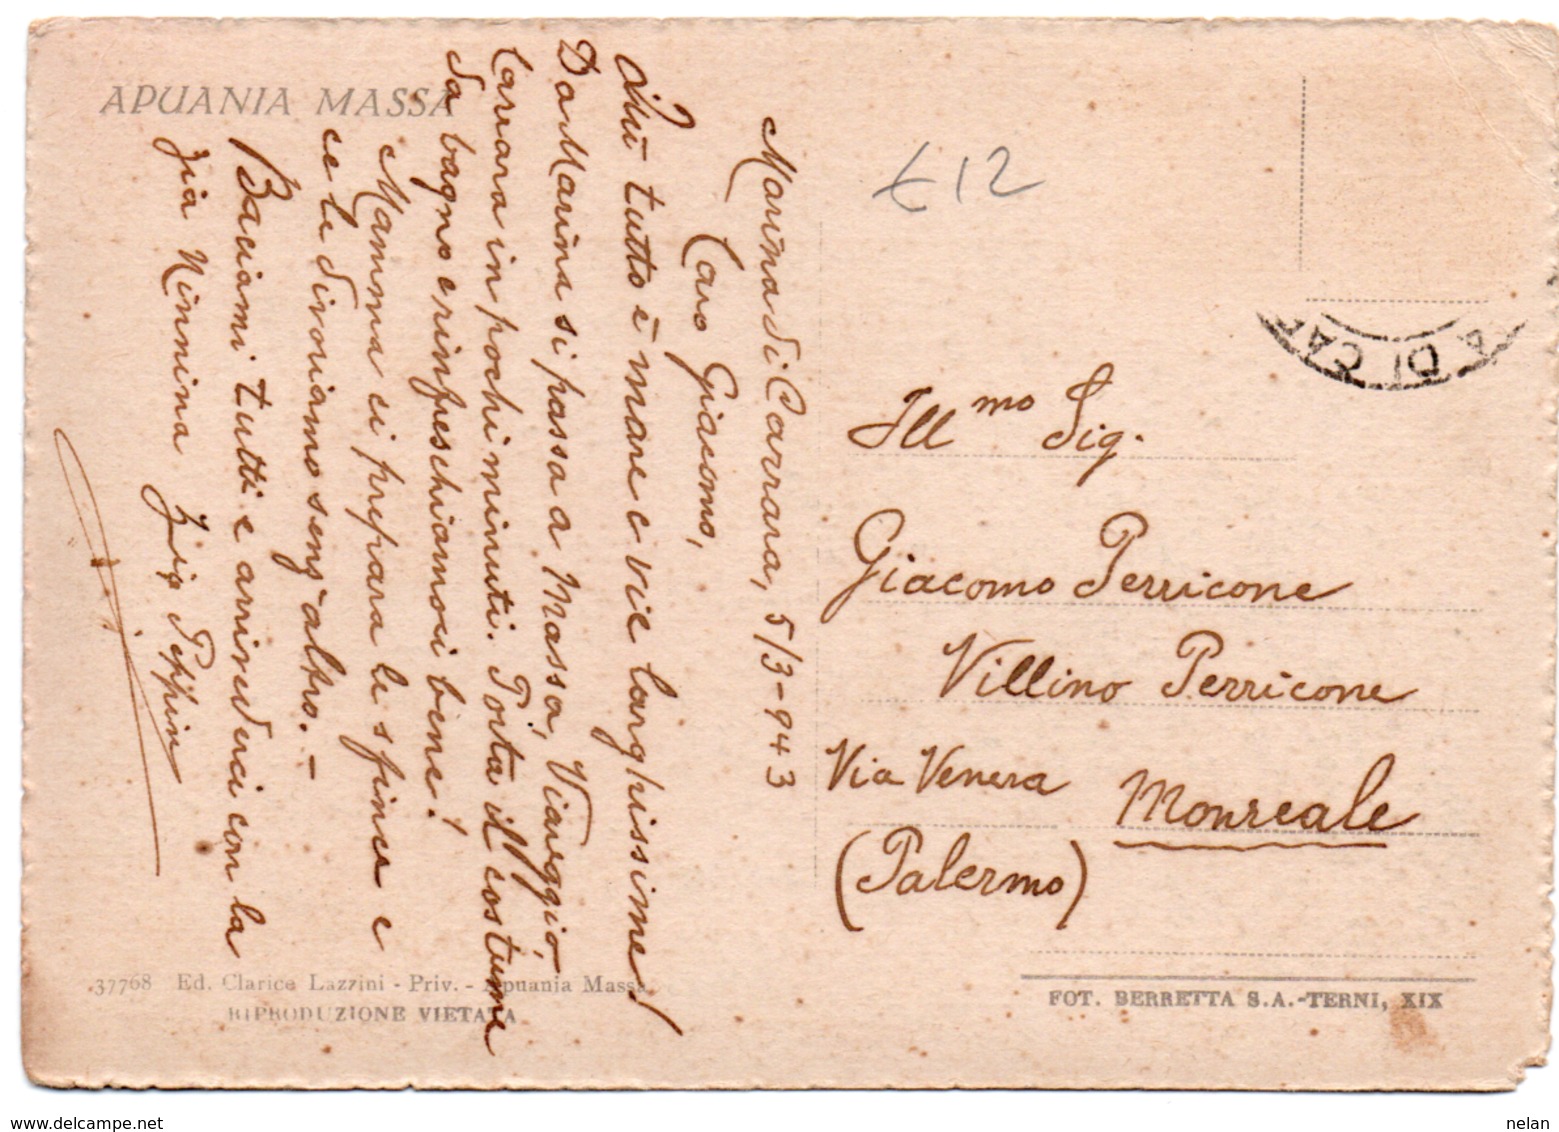 APUANIA MASSA
Marina di Carrara, 5/3-943
Caro Giacomo,
Qui tutto è mare e vie larghissime!
Da Marina si passa a Massa, Viareggio,
Carrara in pochi minuti. Porta il costume
da bagno e rinfreschiamoci bene!
Mamma ci prepara le sfince e
ce le divoriamo senz'altro. -
Baciami tutti e arrivederci con la
zia Ninnina Zio Peppin
€ 12
A DI CAR
Ill.mo Sig.
Giacomo Perricone
Villino Perricone
Via Venera Monreale
(Palermo)
37768 Ed. Clarice Lazzini - Priv. - Apuania Massa
RIPRODUZIONE VIETATA
FOT. BERRETTA S.A.-TERNI, XIX
www.delcampe.net
nelan